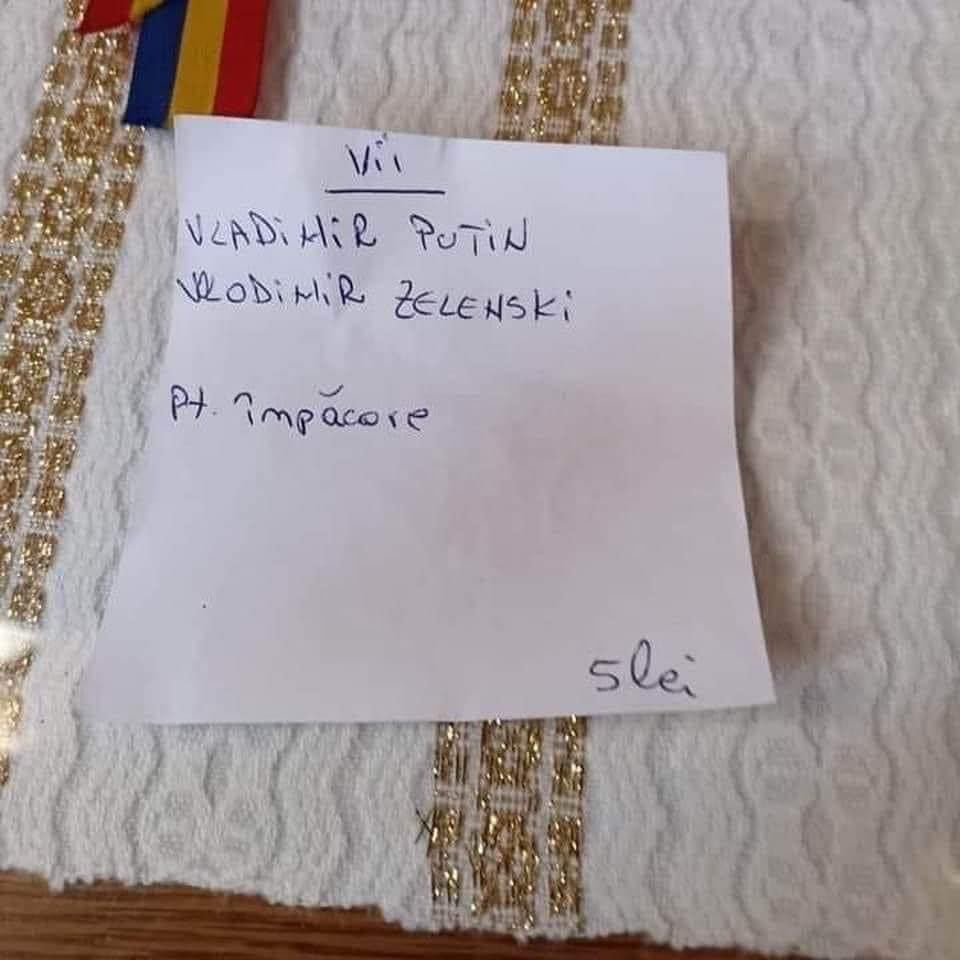 Vii
VLADIMIR PUTIN
VLODIMIR ZELENSKI
Pt. împăcare
5 lei